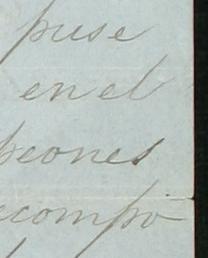 puse
en el
peones
ecompo-